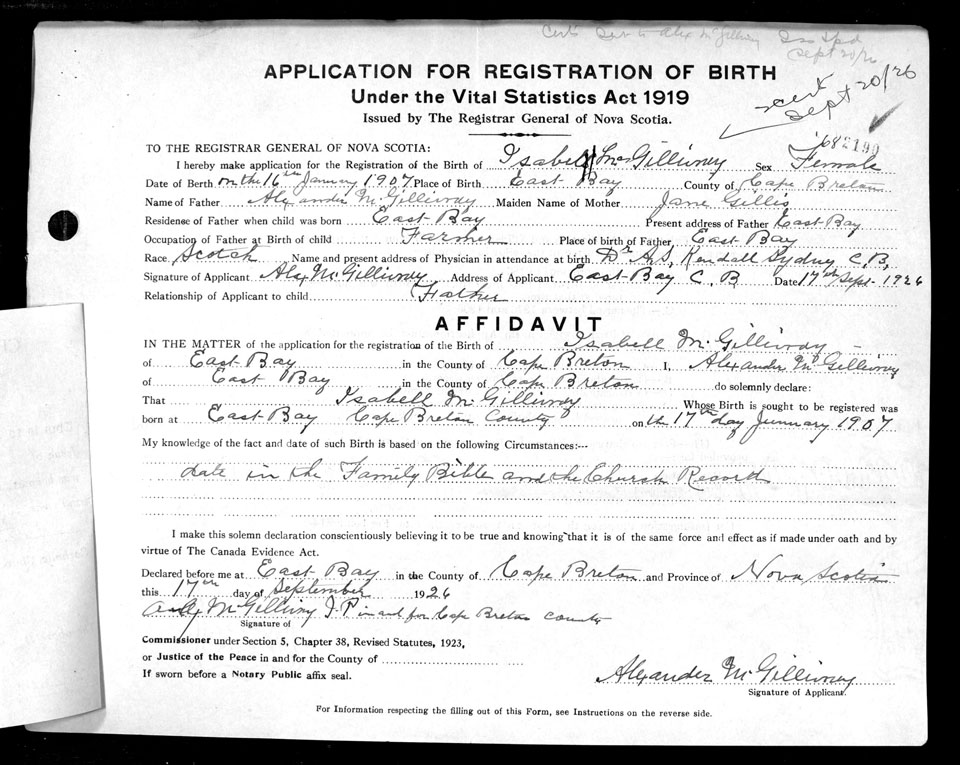 Sept 20/26
APPLICATION FOR REGISTRATION OF BIRTH
Under the Vital Statistics Act 1919
cert
Sept 20/26
Issued by The Registrar General of Nova Scotia.
682190
TO THE REGISTRAR GENERAL OF NOVA SCOTIA:
I hereby make application for the Registration of the Birth of Isabell McGillivray Sex Female
Date of Berth on the 16th January 1907 Place of Birth East Bay County of Cape Breton
Name of Father Alexander McGillivray Maiden Name of Mother Jane Gillis
Residense of Father when child was born East Bay Present address of Father East Bay
Occupation of Father at Birth of child Farmer Place of birth of Father, East Bay
Race Scotch Name and present address of Physician in attendance at birth Dr A,S, Kendall Sydney C, B,
Signature of Applicant Alex McGillivray Address of Applicant East Bay C, B Date 17th Sept- 1926
Relationship of Applicant to child Father
AFFIDAVIT
IN THE MATTER of the application for the registration of the Birth of Isabell McGillivray
of East Bay in the County of Cape Breton I, Alexander McGillivray
of East Bay in the County of Cape Breton do solemnly declare:
That Isabell McGillivray Whose Birth is sought to be registered was
born at East Bay Cape Breton County on the 17th day January 1907
My knowledge of the fact and date of such Birth is based on the following Circumstances:--
date in the Family Bible and the Church Record
I make this solemn declaration conscientiously believing it to be true and knowing that it is of the same force and effect as if made under oath and by
virtue of The Canada Evidence Act.
Declared before me at East Bay in the County of Cape Breton and Province of Nova Scotia
this 17th day of September 1926
McGillivray J.P in and for Cape Breton County
Signature of
Commissioner under Section 5, Chapter 38, Revised Statutes, 1923,
or Justice of the Peace in and for the County of
If sworn before a Notary Public affix seal.
Alexander McGillivray
Signature of Applicant.
For Information respecting the filling out of this Form, see Instructions on the reverse side.